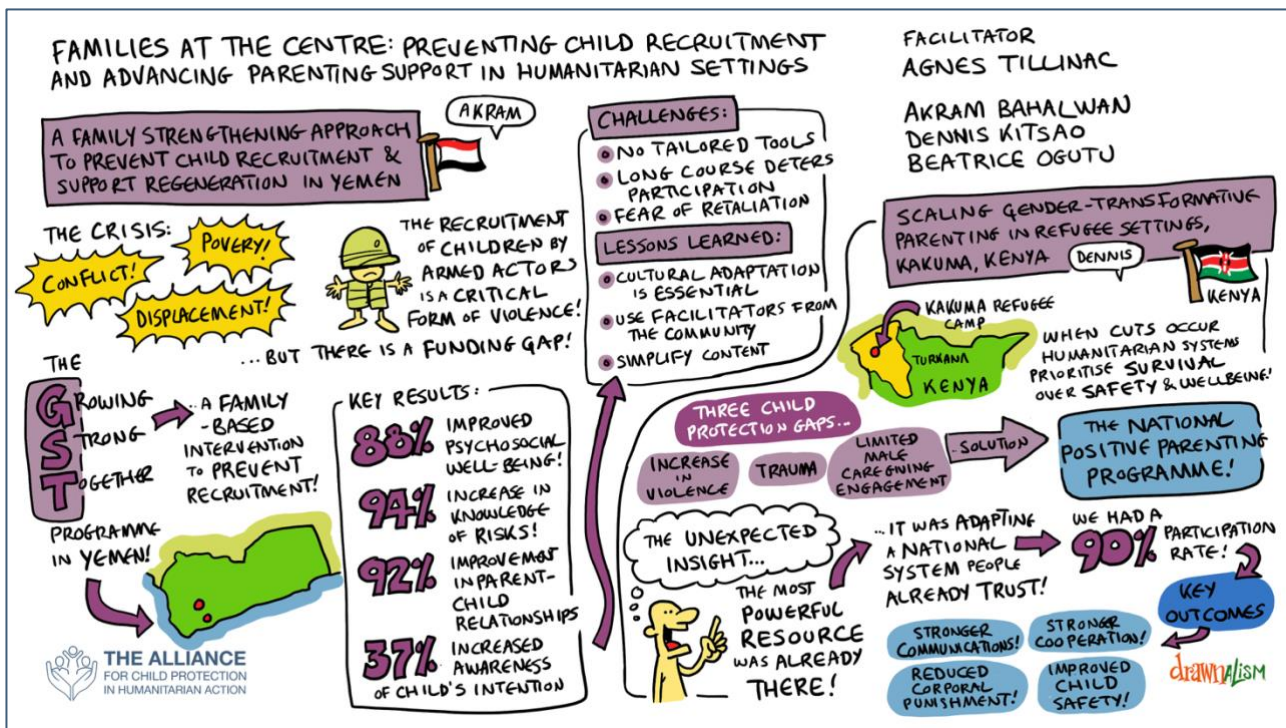 FAMILIES AT THE CENTRE: PREVENTING CHILD RECRUITMENT
AND ADVANCING PARENTING SUPPORT IN HUMANITARIAN SETTINGS
FACILITATOR
AGNES TILLINAC
AKRAM BAHALWAN
DENNIS KITSAO
BEATRICE OGUTU
A FAMILY STRENGTHENING APPROACH
TO PREVENT CHILD RECRUITMENT &
SUPPORT REGENERATION IN YEMEN
AKRAM
THE CRISIS:
CONFLICT!
POVERY!
DISPLACEMENT!
THE RECRUITMENT
OF CHILDREN BY
ARMED ACTORS
IS A CRITICAL
FORM OF VIOLENCE!
...BUT THERE IS A FUNDING GAP!
THE
GROWING
STRONG
TOGETHER
PROGRAMME
IN YEMEN!
...A FAMILY
-BASED
INTERVENTION
TO PREVENT
RECRUITMENT!
KEY RESULTS:
88% IMPROVED
PSYCHOSOCIAL
WELL-BEING!
94% INCREASE IN
KNOWLEDGE
OF RISKS!
92% IMPROVEMENT
IN PARENT-
CHILD
RELATIONSHIPS
37% INCREASED
AWARENESS
OF CHILD'S INTENTION
CHALLENGES:
NO TAILORED TOOLS
LONG COURSE DETERS
PARTICIPATION
FEAR OF RETALIATION
LESSONS LEARNED:
CULTURAL ADAPTATION
IS ESSENTIAL
USE FACILITATORS FROM
THE COMMUNITY
SIMPLIFY CONTENT
SCALING GENDER-TRANSFORMATIVE
PARENTING IN REFUGEE SETTINGS,
KAKUMA, KENYA
DENNIS
KENYA
KAKUMA REFUGEE
CAMP
TURKANA
KENYA
WHEN CUTS OCCUR
HUMANITARIAN SYSTEMS
PRIORITISE SURVIVAL
OVER SAFETY & WELLBEING!
THREE CHILD
PROTECTION GAPS...
INCREASE
IN
VIOLENCE
TRAUMA
LIMITED
MALE
CAREGIVING
ENGAGEMENT
-SOLUTION
THE NATIONAL
POSITIVE PARENTING
PROGRAMME!
THE UNEXPECTED
INSIGHT...
THE MOST
POWERFUL
RESOURCE
WAS ALREADY
THERE!
...IT WAS ADAPTING
A NATIONAL
SYSTEM PEOPLE
ALREADY TRUST!
WE HAD A
90% PARTICIPATION
RATE!
KEY
OUTCOMES
STRONGER
COMMUNICATIONS!
STRONGER
COOPERATION!
REDUCED
CORPORAL
PUNISHMENT!
IMPROVED
CHILD
SAFETY!
THE ALLIANCE
FOR CHILD PROTECTION
IN HUMANITARIAN ACTION
drawnalism